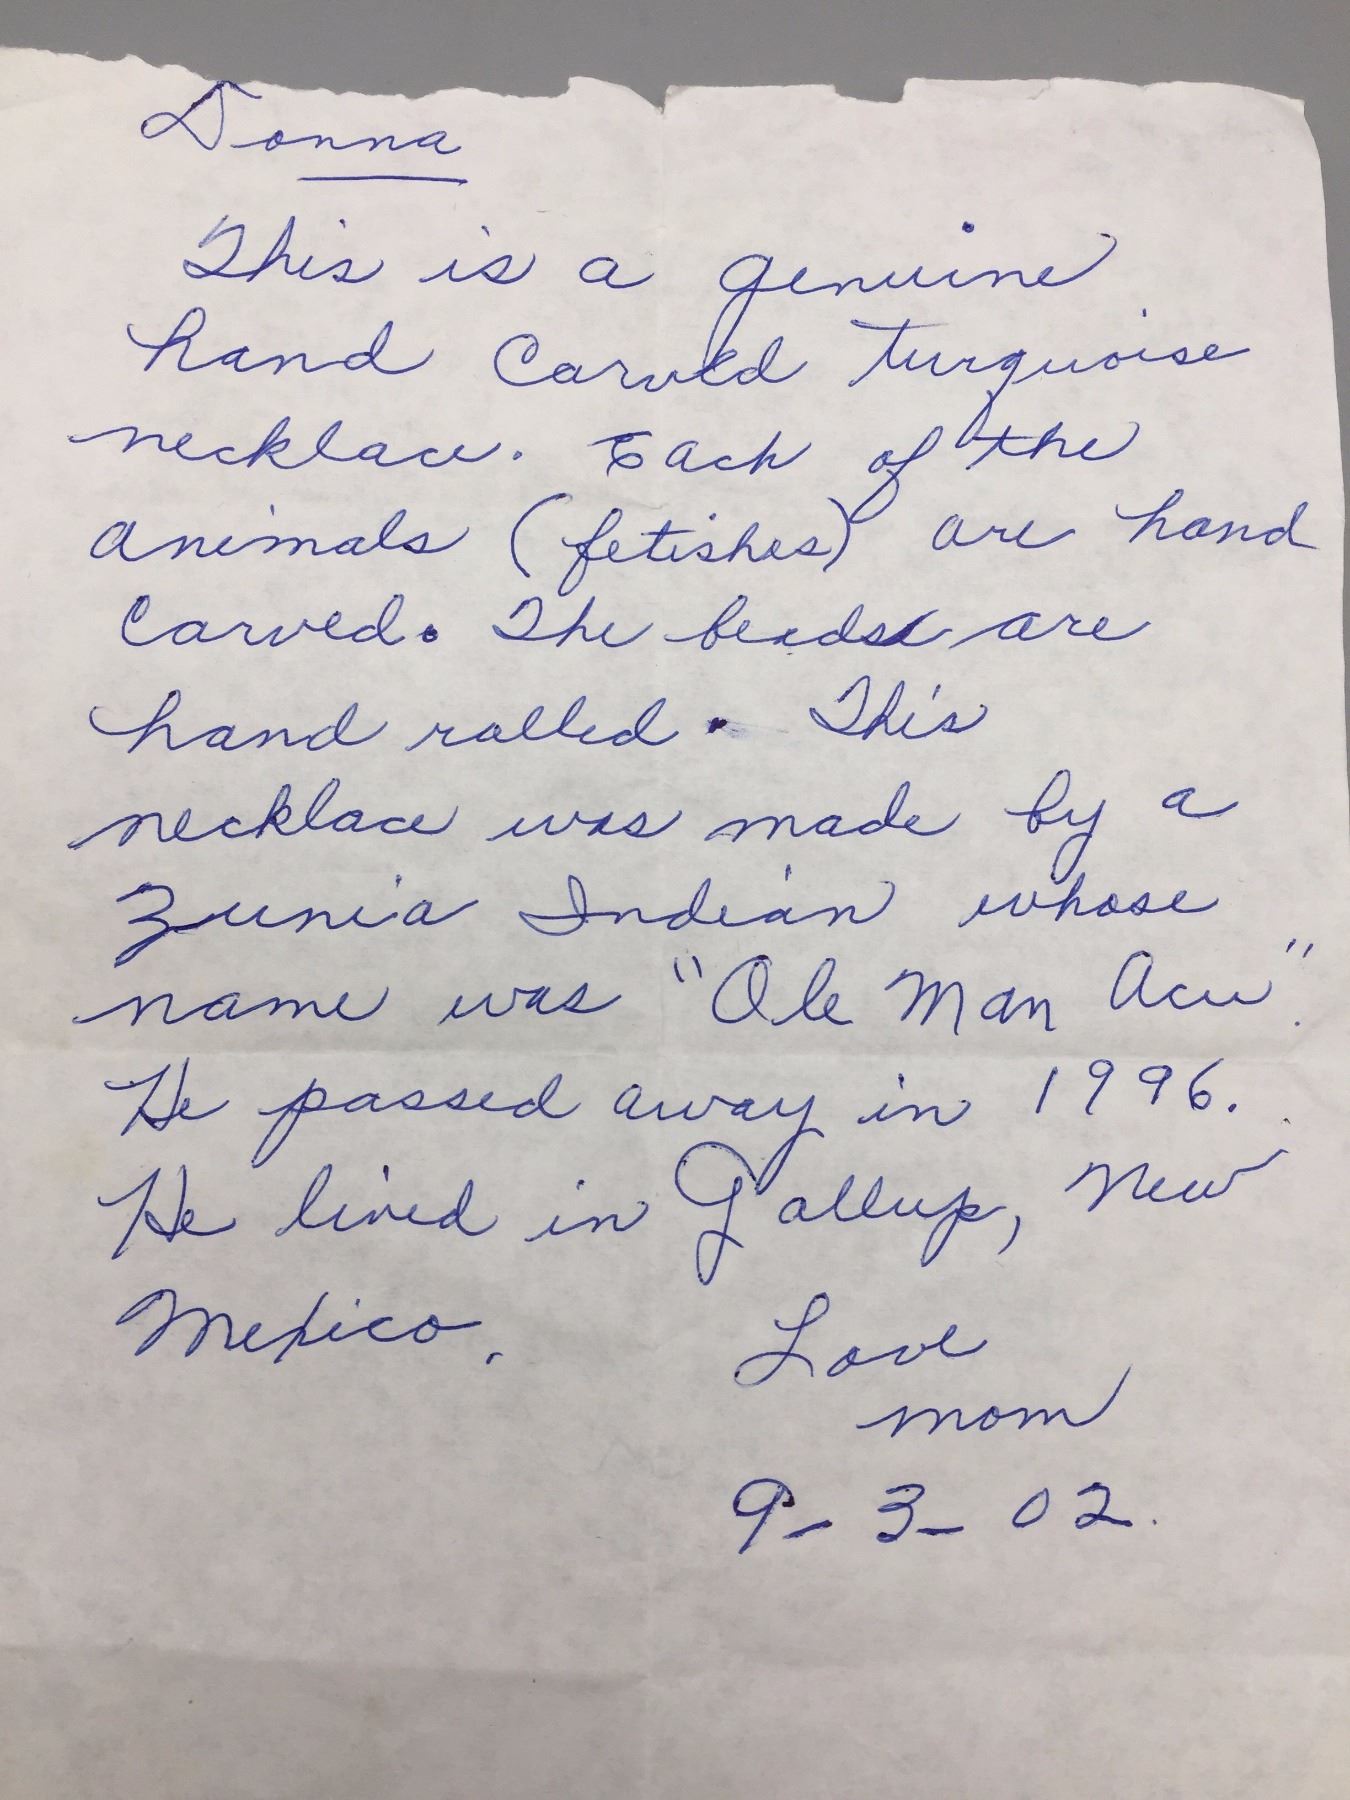 Donna
This is a genuine
hand Carved turquoise
necklace. Each of the
animals (fetishes) are hand
Carved. The beads are
hand rolled. This
necklace was made by a
Zunia Indian whose
name was "Ole Man Acu".
He passed away in 1996.
He lived in Gallup, New
Mexico.
Love
mom
9-3-02.